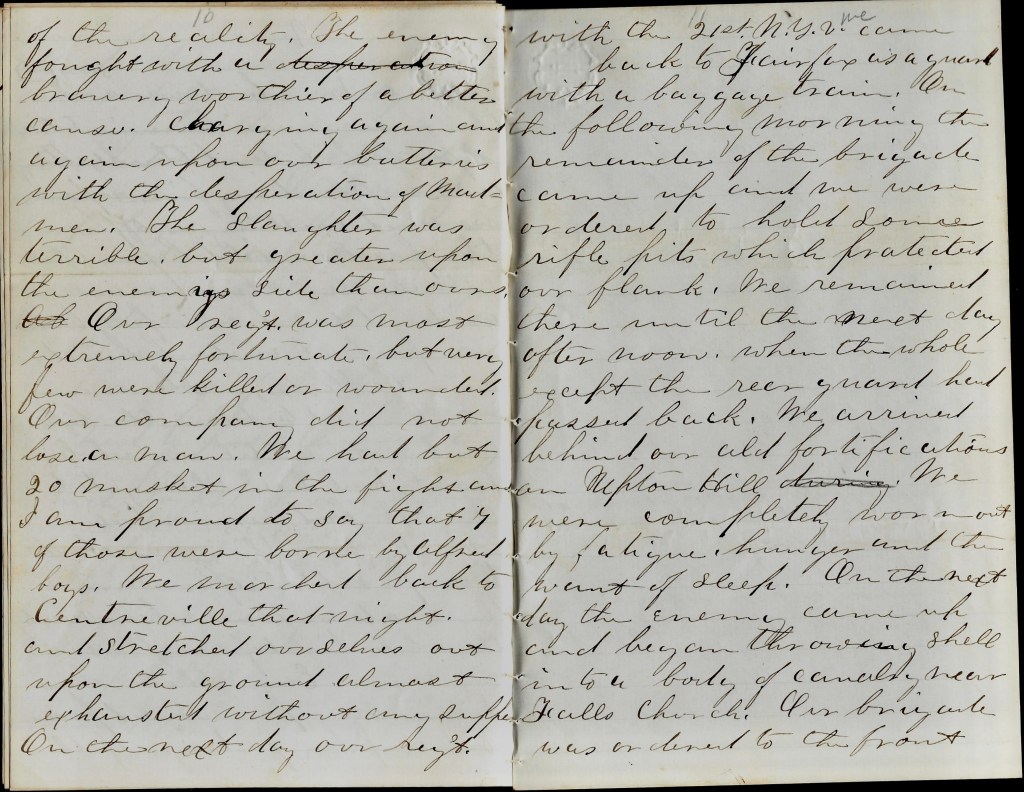 10
of the reality. The enemy
fought with a desperation
bravery worthier of a better
cause. Charging again and
again upon our batteries
with the desperation of Mad-
men. The slaughter was
terrible, but greater upon
the enemys side than ours.
Our reg't. was most
extremely fortunate, but very
few were killed or wounded.
Our company did not
lose a man. We had but
20 musket in the fight and
I am proud to say that 7
of those were borne by Alfred
boys. We marched back to
Centreville that night.
and stretched ourselves out
upon the ground almost
exhausted without any suppe
On the next day our reg't.
11
with the 21st N.Y.V. we came
back to Fairfax as a guard
with a baggage train. On
the following morning the
remainder of the brigade
came up and we were
ordered to hold some
rifle pits which protected
our flank. We remained
there until the next day
after noon. when the whole
except the rear guard had
passed back. We arrived
behind our old fortifications
on Upton Hill during. We
were completely worn out
by fatigue, hunger and the
want of sleep. On the next
day the enemy came up
and began throwing shell
into a body of cavalry near
Falls Church. Our brigade
was ordered to the front